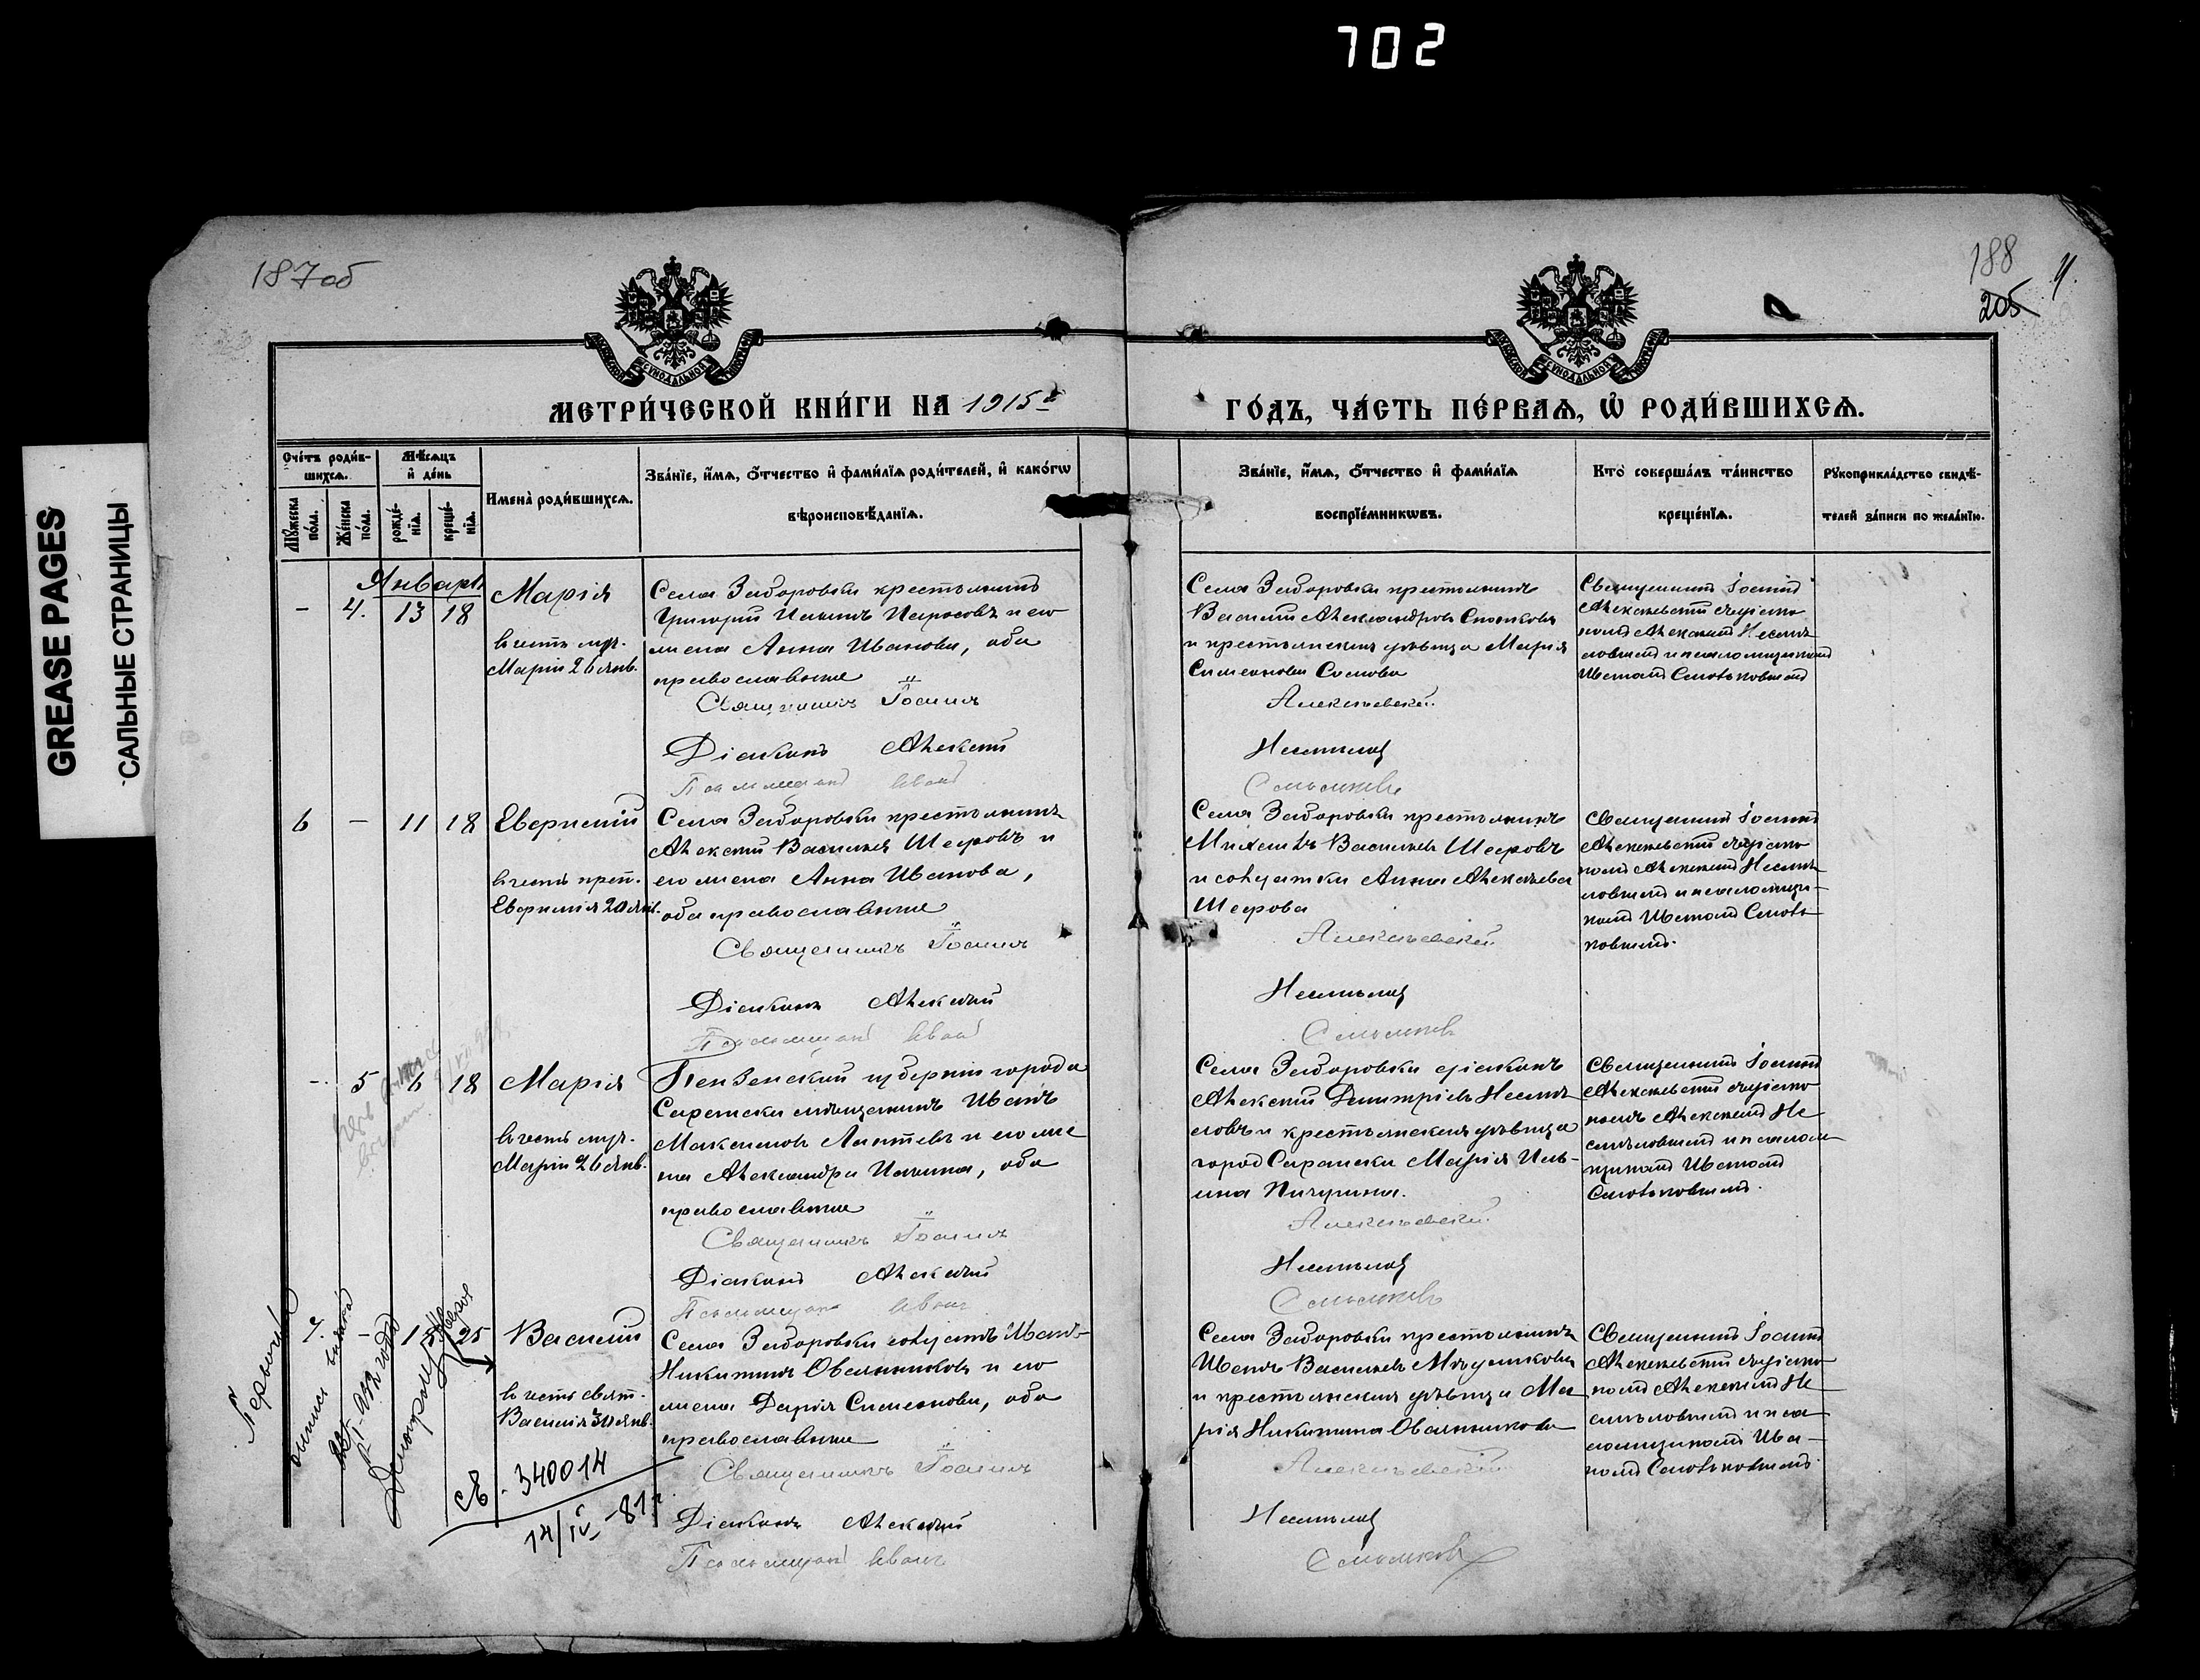 702
GREASE PAGES
САЛЬНЫЕ СТРАНИЦЫ
187об
188
205
МЕТРИ́ЧЕСКОЙ КНИ́ГИ НА 1915 г
ГО́ДЪ, ЧА́СТЬ ПЕ́РВАѦ, Ѡ҆ РОДИ́ВШИХСѦ.
Сче́тъ роди́в-
шихсѧ.
Мѣ́сѧцъ
и҆ де́нь
Мꙋ́жеска
по́ла.
Же́нска
по́ла.
рожде́-
нїѧ.
креще́-
нїѧ.
Имена̀ роди́вшихсѧ.
Зва́нїе, и҆́мѧ, ѻ҆́тчество и҆ фами́лїѧ роди́телей, и҆ како́гѡ
вѣроисповѣ́данїѧ.
Зва́нїе, и҆́мѧ, ѻ҆́тчество и҆ фами́лїѧ
воспрїе́мникѡвъ.
Кто̀ соверша́лъ та́инство
креще́нїѧ.
Рꙋкоприкла́дство свидѣ́-
телей за́писи по жела́нїю.
Январь
- 4. 13 18 Марія
въ честь муч.
Маріи 26 янв.
Села Заборовки крестьянинъ
Григорій Ильинъ и его
жена Анна Иванова, оба
православные
Священникъ Іоаннъ
Діаконъ Алексей
Псаломщикъ Иванъ
Села Заборовки крестьянинъ
Василій Александровъ
и крестьянская дѣвица Марія
Симеонова
Алексѣевскій
Несмѣловъ
Священникъ Іоаннъ
Алексѣевскій съ діако-
номъ Алексеемъ Несмѣ-
ловымъ и псаломщикомъ
Иваномъ
6 - 11 18 Евѳимій
въ честь преп.
Евѳимія 20 янв.
Села Заборовки крестьянинъ
Алексей Васильевъ и
его жена Анна Иванова,
оба православные
Священникъ Іоаннъ
Діаконъ Алексей
Псаломщикъ Иванъ
Села Заборовки крестьянинъ
Васильевъ
и солдатка Анна Алексѣева
Алексѣевскій
Несмѣловъ
Священникъ Іоаннъ
Алексѣевскій съ діако-
номъ Алексеемъ Несмѣ-
ловымъ и псаломщи-
комъ Иваномъ
- 5 6 18 Марія
въ честь муч.
Маріи 26 янв.
Пензенской губерніи города
Саранска мѣщанинъ Иванъ
Максимовъ Лаптевъ и его же
на Александра Ильина, оба
православные
Священникъ Іоаннъ
Діаконъ Алексей
Псаломщикъ Иванъ
Села Заборовки діаконъ
Алексей Димитріевъ Несмѣ-
ловъ и крестьянская дѣвица
город Саранска Марія Иль-
ина Пичурина.
Алексѣевскій
Несмѣловъ
Священникъ Іоаннъ
Алексѣевскій съ діако
номъ Алексеемъ Не
смѣловымъ и псалом
щикомъ Иваномъ
7. - 25 Василій
въ честь свят.
Василія 30 янв.
Села Заборовки солдатъ Иванъ
Никитинъ Овсянниковъ и его
жена Дарія Симеонова, оба
православные
Священникъ Іоаннъ
Діаконъ Алексей
Псаломщикъ Иванъ
Села Заборовки крестьянинъ
Иванъ Васильевъ
и крестьянская дѣвица Ма
рія Никитина Овсянникова
Алексѣевскій
Несмѣловъ
Священникъ Іоаннъ
Алексѣевскій съ діако
номъ Алексеемъ Не
смѣловымъ и пса
ломщикомъ Ива-
номъ
340014
14/IV-81г